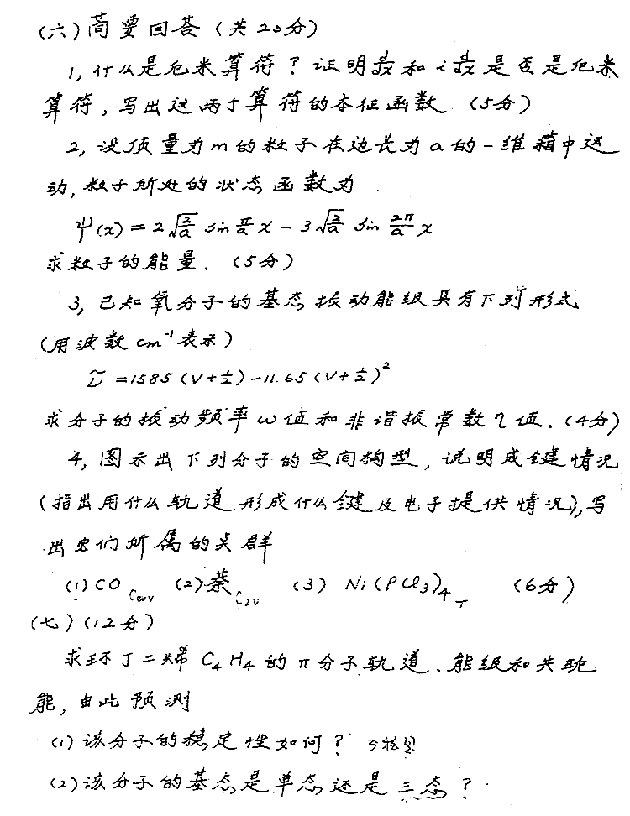 (六)简要回答(共20分)
1,什么是厄米算符?证明 和i 是否是厄米
算符,写出这两个算符的本征函数.(5分)
2,设质量为m的粒子在边长为a的一维箱中运
动,粒子所处的状态函数为
ψ(x)=2√(2/a) sin π/a x - 3√(2/a) sin 2π/a x
求粒子的能量.(5分)
3,已知氧分子的基态振动能级具有下列形式
(用波数cm⁻¹表示)
=1585(V+½)-11.65(V+½)²
求分子的振动频率ω值和非谐振常数η值.(4分)
4,图示出下列分子的空间构型,说明成键情况
(指出用什么轨道形成什么键及电子提供情况),写
出它们所属的点群
(1)CO C∞v (2) C2v (3) Ni(PCl3)4 T (6分)
(七)(12分)
求环丁二烯C4H4的π分子轨道.能级和共轭
能,由此预测
(1)该分子的稳定性如何?
(2)该分子的基态是单态还是三态?